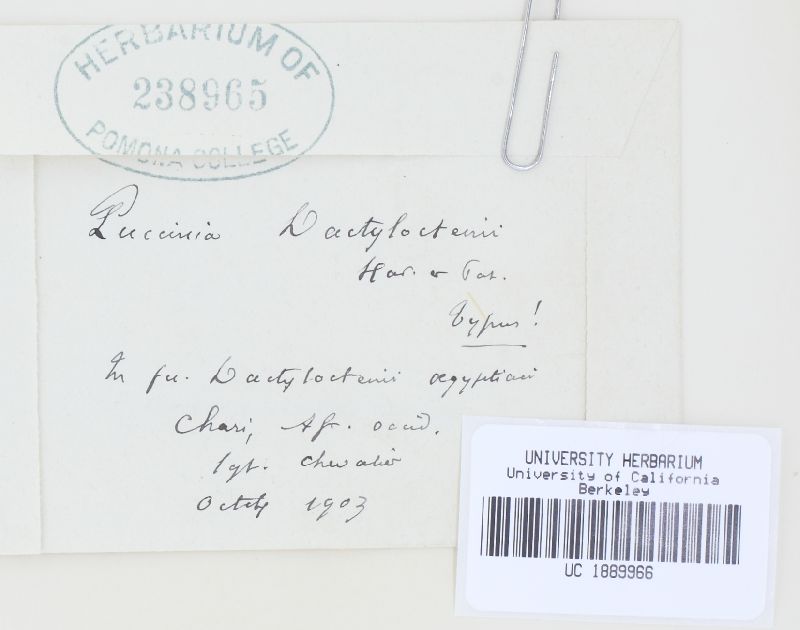 HERBARIUM OF
238965
POMONA COLLEGE
Puccinia Dactyloctenii
Har. & Pat.
typus!
In fu. Dactyloctenii ægyptiaci
Chari, Af. occid.
lgt. Chevalier
Octob 1903
UNIVERSITY HERBARIUM
University of California
Berkeley
UC 1889966